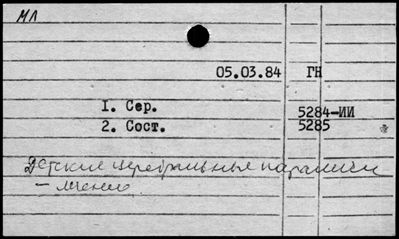 МЛ
05.03.84 ГН
1. Сер. 5284-ИИ
2. Сост. 5285
Детские церебральные параличи
- лечение